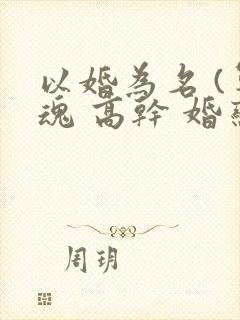 以婚為名(
魂 高幹 婚
周玥